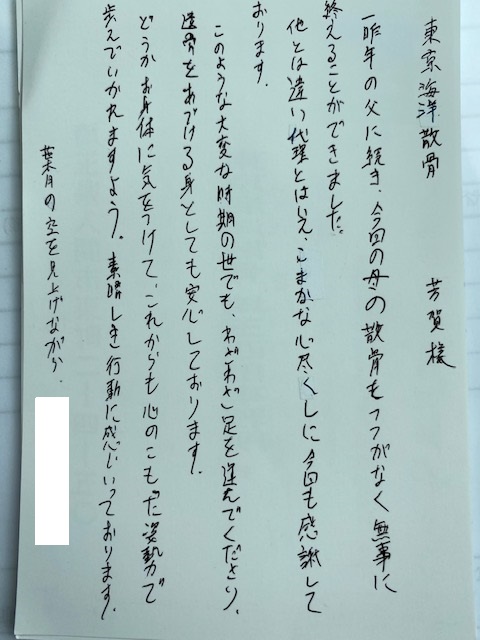 東京海洋散骨　芳賀様
一昨年の父に続き、今回の母の散骨もつつがなく無事に
終えることができました。
他とは違い代理とはいえ、こまかな心尽くしに今回も感謝して
おります。
このような大変な時期の世でも、わざわざ足を運んでくださり、
遺骨をあずける身としても安心しております。
どうかお身体に気をつけて、これからも心のこもった姿勢で
歩んでいかれますよう。素晴しき行動に感じいっております。
葉月の空を見上げながら、